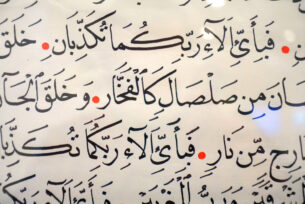 فَبِأَيِّ آلَاءِ رَبِّكُمَا تُكَذِّبَانِ خَلَقَ
مِن صَلْصَالٍ كَالْفَخَّارِ وَخَلَقَ الْجَانَّ
مِن نَارٍ فَبِأَيِّ آلَاءِ رَبِّكُمَا تُكَذِّبَانِ
وَرَبُّ